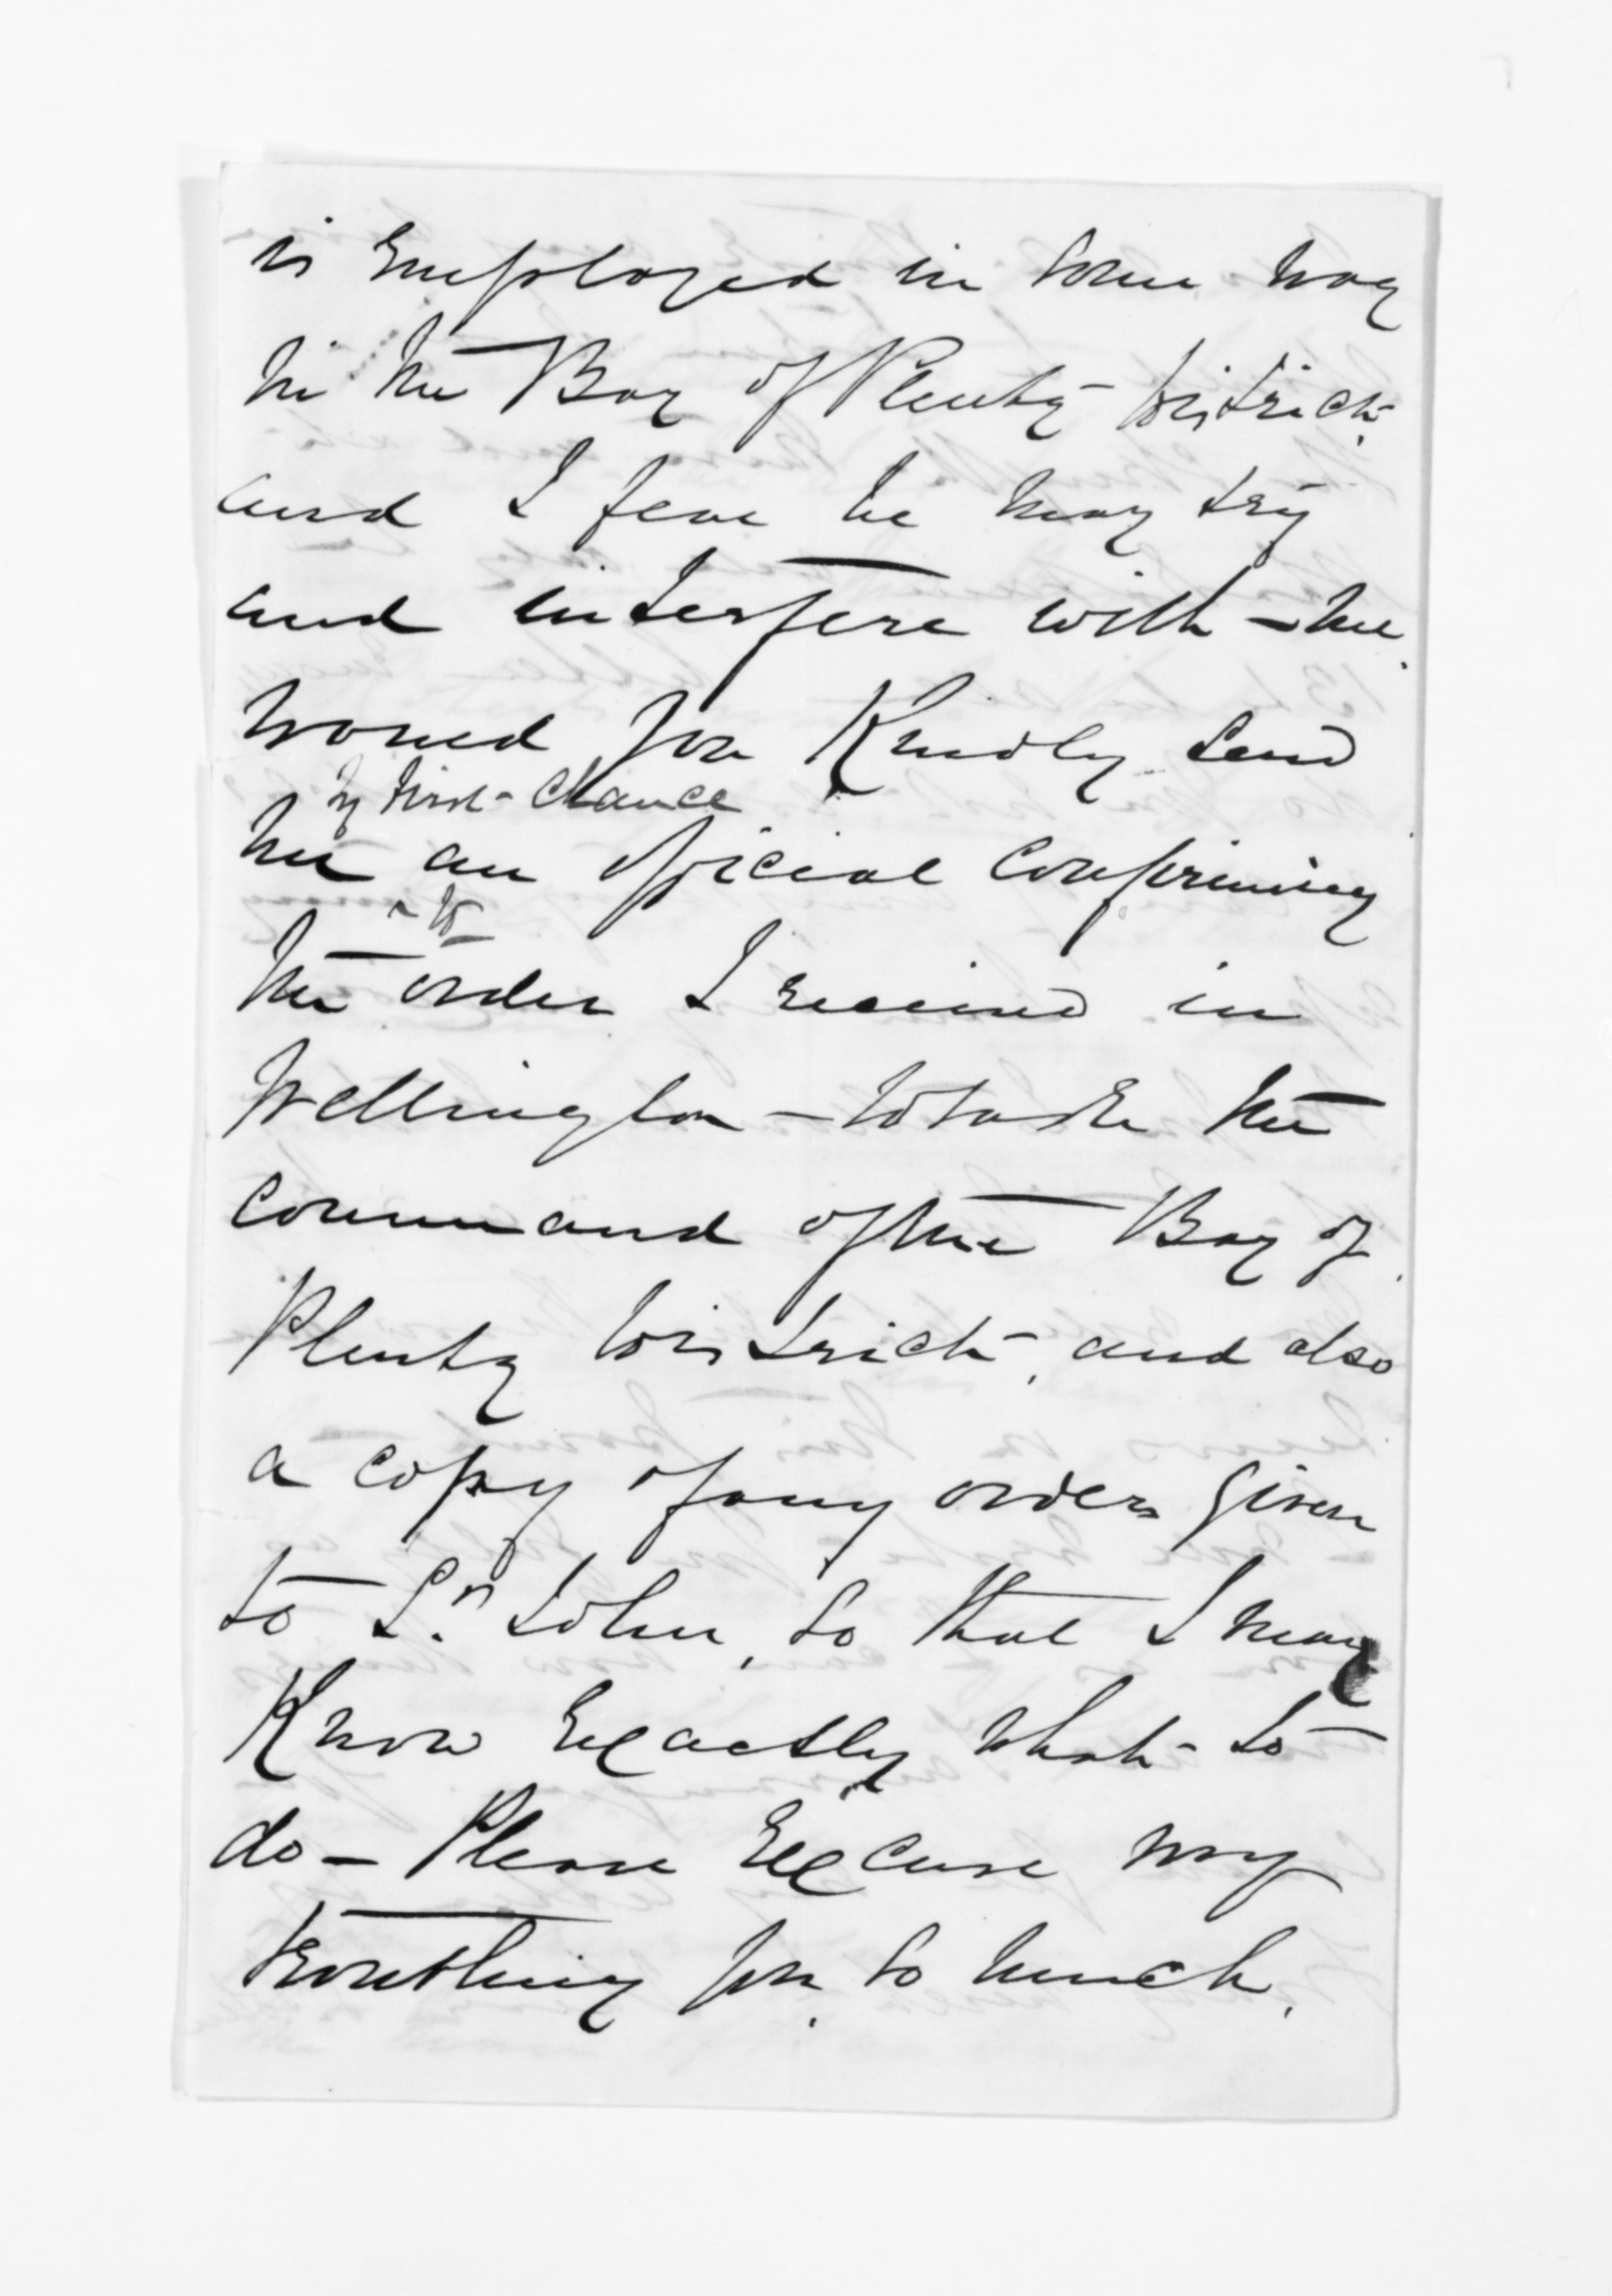 is Employed in some way
in the Bay of Plenty District,
and I fear he may try
and interfere with me.
Would you Kindly send
by first chance
me an official confirming
the order I received in
Wellington - to take the
command of the Bay of
Plenty District, and also
a copy of any orders given
to St. John, so that I may
Know Exactly what to
do - Please Excuse my
troubling you so much.